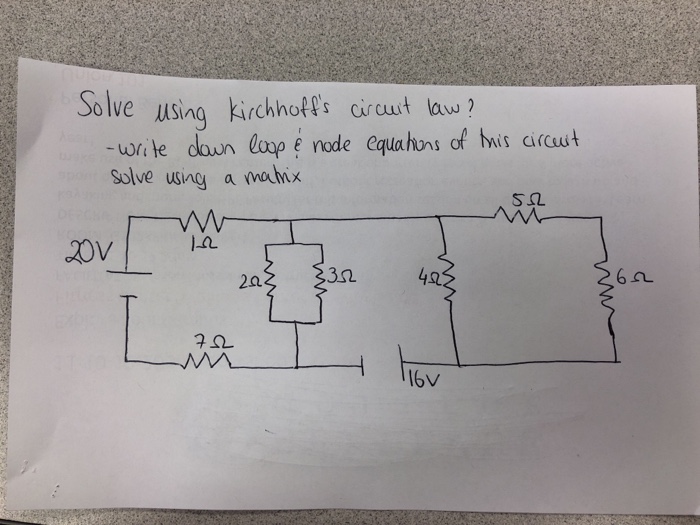 Solve using Kirchhoff's circuit law?
- write down loop & node equations of this circuit
solve using a matrix
5Ω
20V
1Ω
2Ω 3Ω 4Ω 6Ω
7Ω
16V